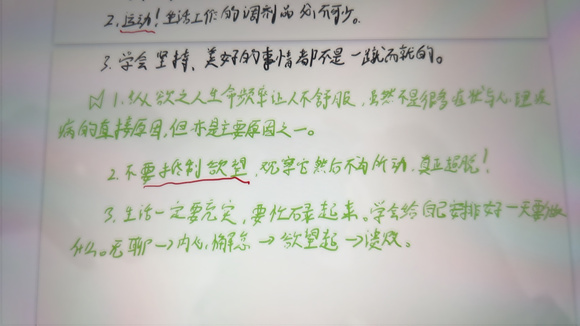 2.运动!生活工作的调剂品 分不可少。
3.学会坚持、美好的事情都不是一蹴而就的。
1.纵欲之人生命频率让人不舒服,虽然不是很多症状与心理疾
病的直接原因,但亦是主要原因之一。
2.不要抵制欲望,观察它然后不为所动,真正超脱!
3.生活一定要充实,要忙碌起来。学会给自己安排好一天要做
什么。无聊→内心懈怠→欲望起→溃败。